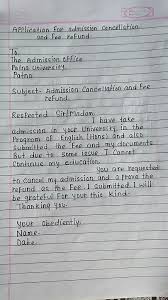 Application for admission Cancellation
and Fee Refund
To,
The Admission Office
Patna University
Patna
Subject- Admission Cancellation and Fee
refund.
Respected Sir/Madam.
I have take
admission in your University in the
Program of English (Hons) and also
Submitted the Fee and my documents
But due to Some issue I Cannot
Continue my education.
You are requested
to Cancel my admission and a Prove the
refund as the Fee I Submitted. I will
be grateful for your this Kind-
Thanking you-
Your obediently:
Name-
Date-